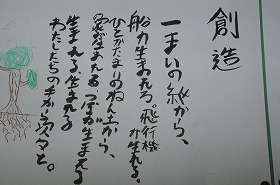 創造
一まいの紙から、
船が生まれる。飛行機が生れる。
ひとかたまりのねん土から、
象が生まれる。つぼが生まれる
生まれる、生まれる
わたしたちの手から次々と。